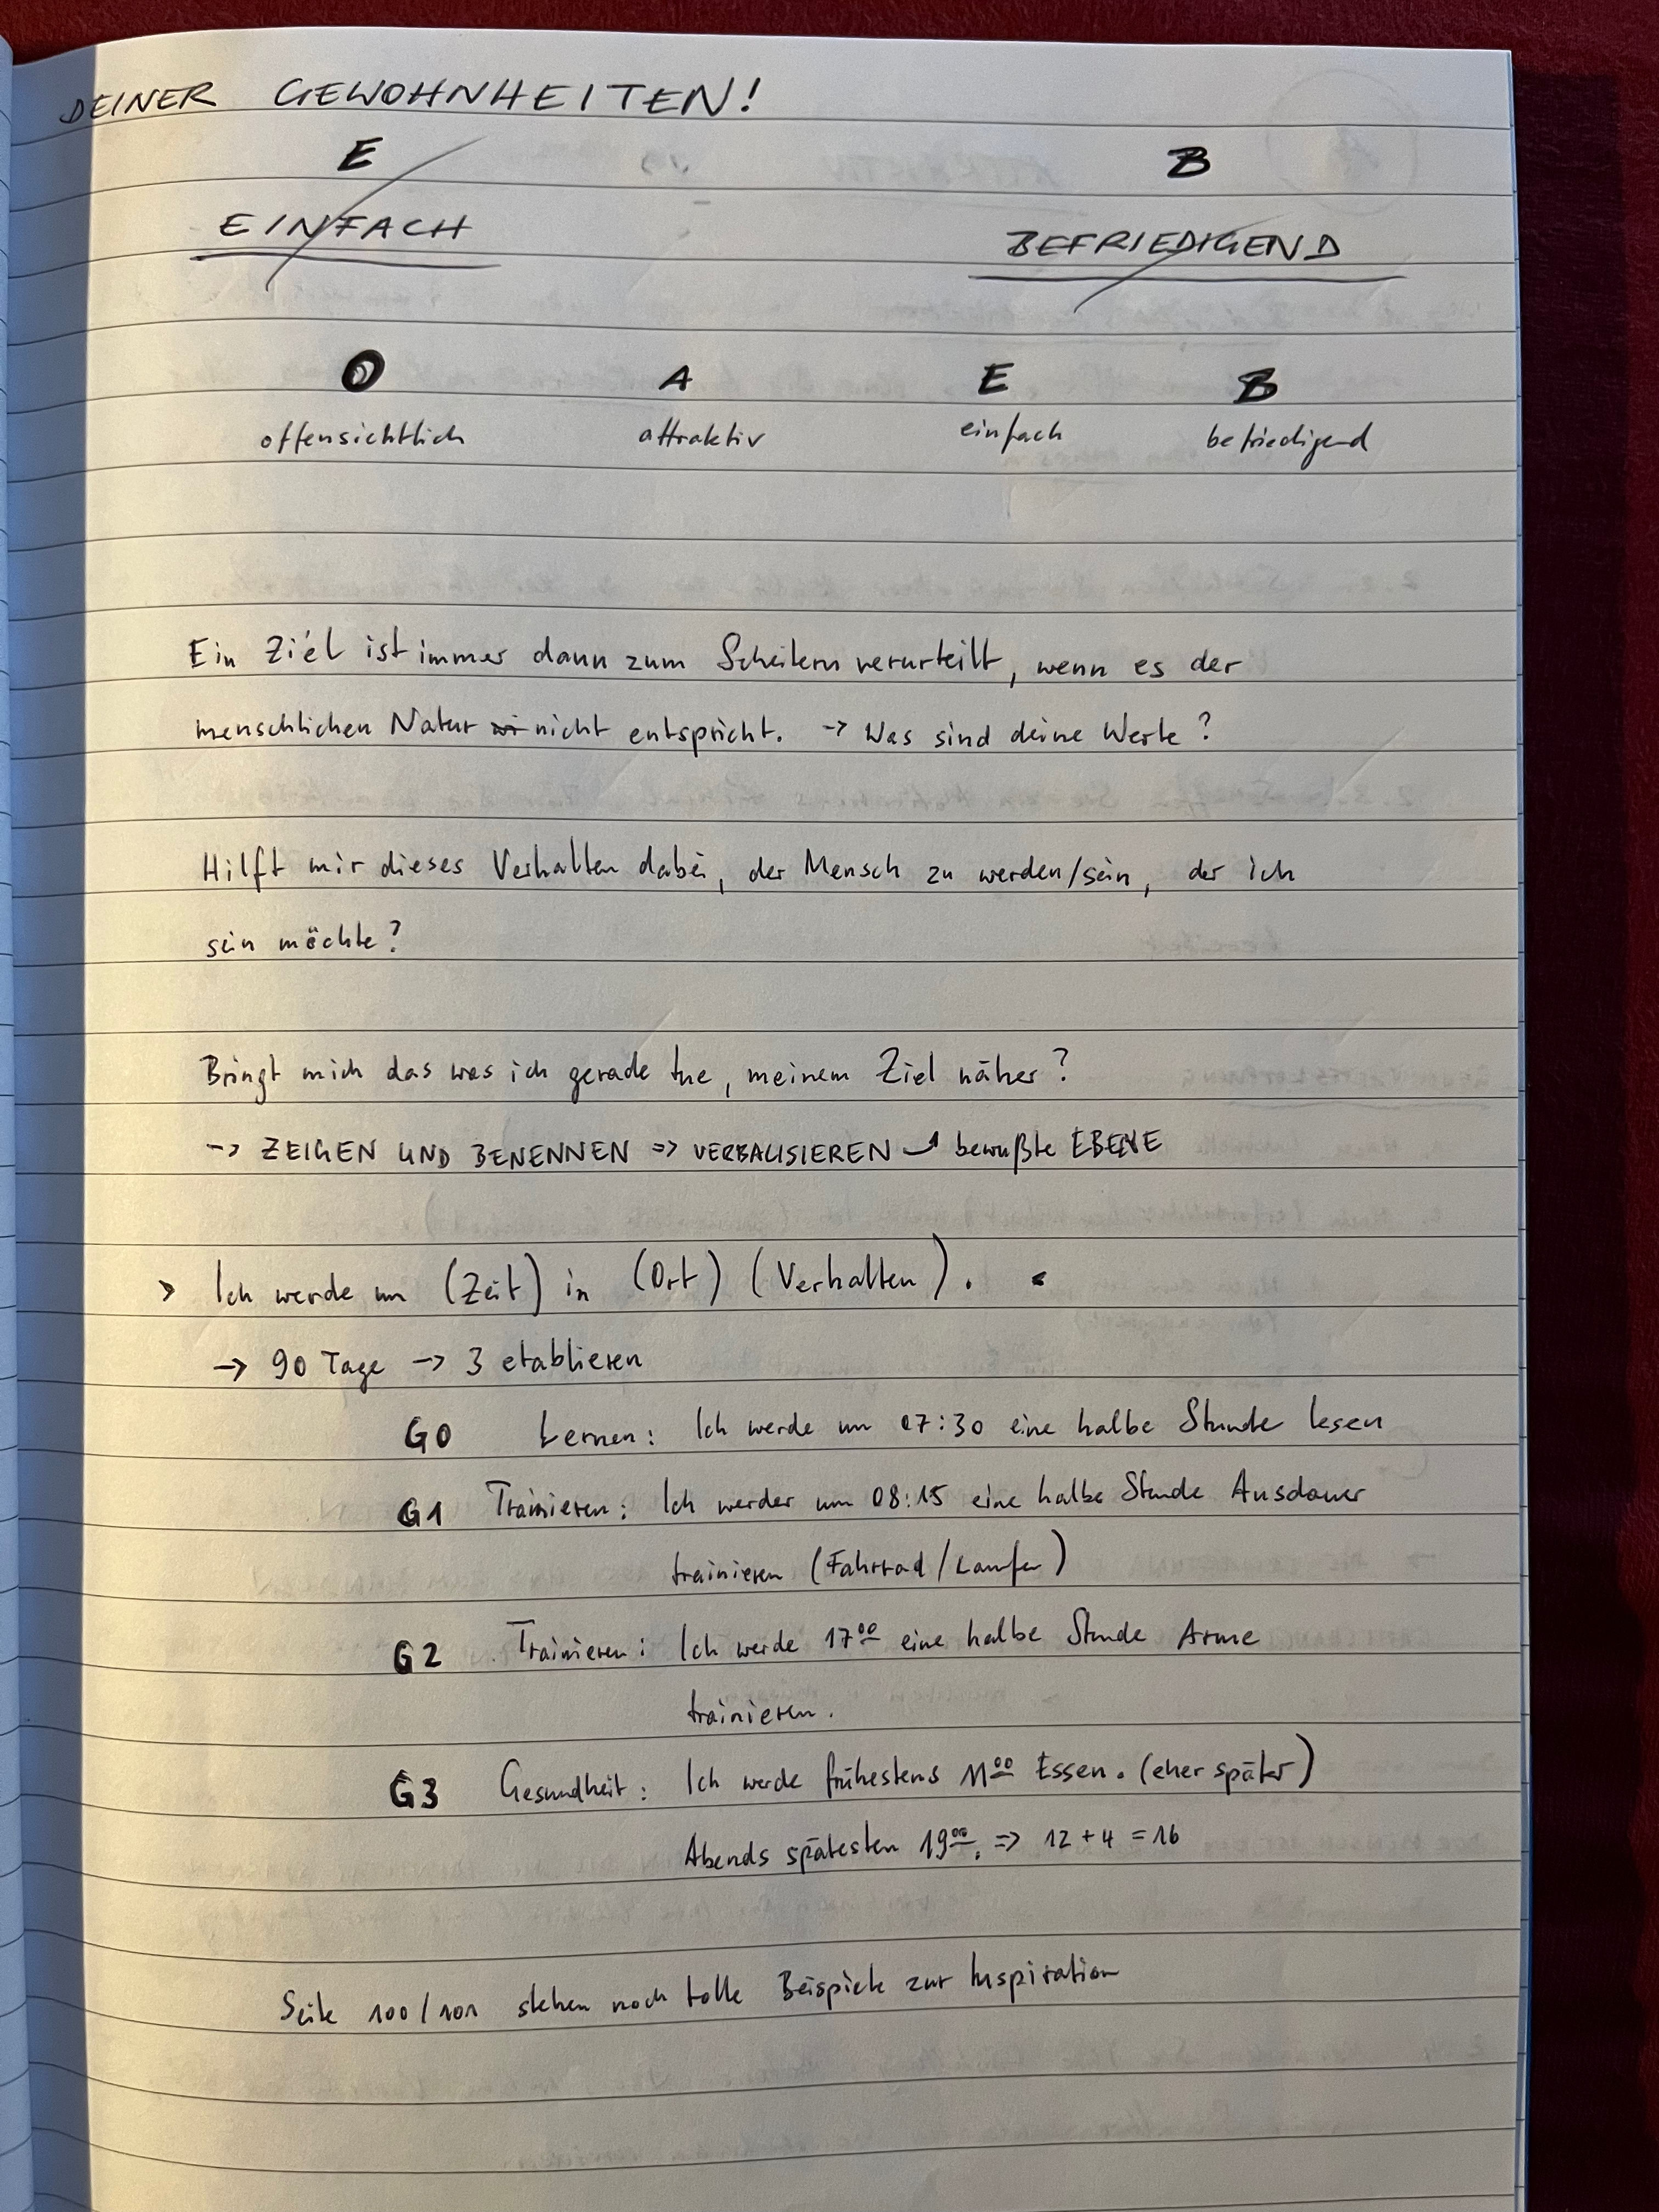 DEINER GEWOHNHEITEN!
E B
EINFACH BEFRIEDIGEND
O A E B
offensichtlich attraktiv einfach befriedigend
Ein Ziel ist immer dann zum Scheitern verurteilt, wenn es der
menschlichen Natur nicht entspricht. -> Was sind deine Werte?
Hilft mir dieses Verhalten dabei, der Mensch zu werden/sein, der ich
sein möchte?
Bringt mich das was ich gerade tue, meinem Ziel näher?
-> ZEIGEN UND BENENNEN => VERBALISIEREN bewußte EBENE
> Ich werde um (Zeit) in (Ort) (Verhalten). <
-> 90 Tage -> 3 etablieren
G0 Lernen: Ich werde um 07:30 eine halbe Stunde lesen
G1 Trainieren: Ich werder um 08:15 eine halbe Stunde Ausdauer
trainieren (Fahrrad/Laufen)
G2 Trainieren: Ich werde 17⁰⁰ eine halbe Stunde Arme
trainieren.
G3 Gesundheit: Ich werde frühestens 11⁰⁰ Essen. (eher später)
Abends spätesten 19⁰⁰. => 12 + 4 = 16
Seite 100/101 stehen noch tolle Beispiele zur Inspiration